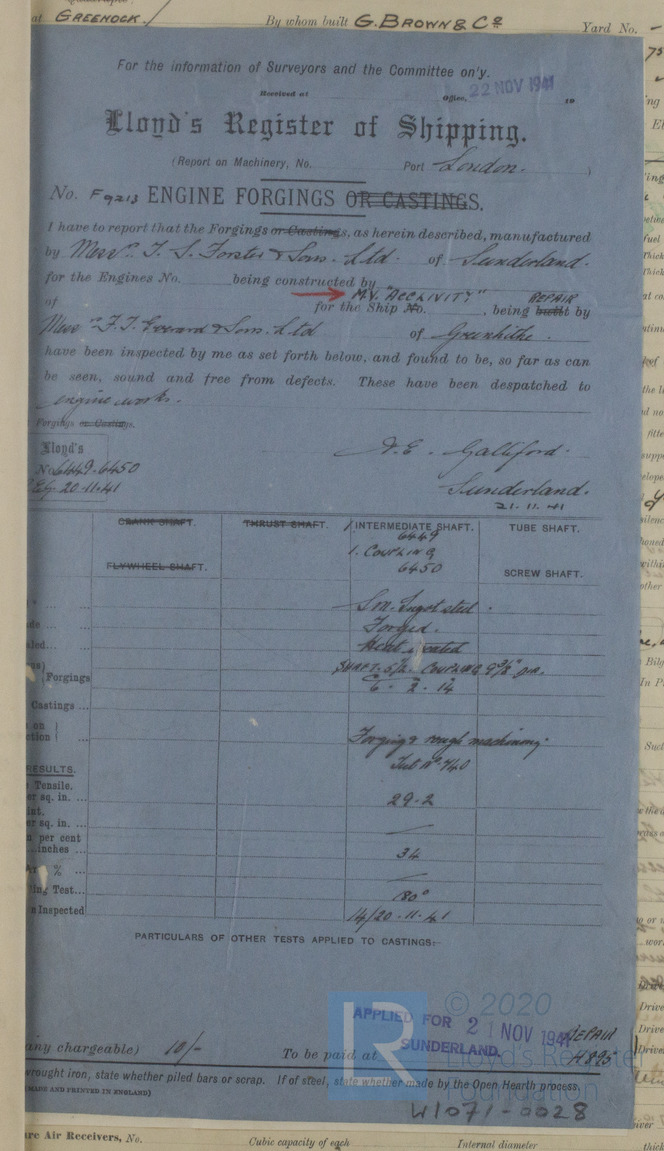 at GREENOCK. By whom built G. BROWN & Co Yard No.
For the information of Surveyors and the Committee on'y.
Received at Office, 22 NOV 1941 19
Lloyd's Register of Shipping.
(Report on Machinery, No. Port London. )
No. F9213 ENGINE FORGINGS OR CASTINGS.
I have to report that the Forgings or Castings, as herein described, manufactured
by Messrs. T. S. Forster & Sons. Ltd. of Sunderland.
for the Engines No. being constructed by
M.V. "ACCLIVITY" REPAIR
of for the Ship No. , being built by
Messrs F. T. Everard & Sons. Ltd of Greenhithe.
have been inspected by me as set forth below, and found to be, so far as can
be seen, sound and free from defects. These have been despatched to
engine works.
Forgings or Castings.
Lloyd's
No 6449-6450
20-11-41
A. E. Galliford.
Sunderland.
21-11-41
CRANK SHAFT. THRUST SHAFT. 1 INTERMEDIATE SHAFT. TUBE SHAFT.
6449
1. COUPLING
FLYWHEEL SHAFT. 6450 SCREW SHAFT.
S.M. Ingot steel.
Forged.
Heat treated
SHAFT. 5½" COUPLING 9⅝" DIA.
Forgings 6 - 2 - 14
Castings ...
on }
ction }
Forging & rough machining.
RESULTS. Test No. 740
Tensile.
er sq. in. ... 29-2
int.
er sq. in. ...
n per cent
...inches ... 34
% ...
ing Test... 180°
n Inspected 14/20-11-41
PARTICULARS OF OTHER TESTS APPLIED TO CASTINGS:-
LR © 2020
Lloyd's Register
Foundation
APPLIED FOR 21 NOV 1941
SUNDERLAND.
REPAIR
any chargeable) 10/- To be paid at 4895
wrought iron, state whether piled bars or scrap. If of steel, state whether made by the Open Hearth process.
(MADE AND PRINTED IN ENGLAND)
W1071-0028
are Air Receivers, No. Cubic capacity of each Internal diameter